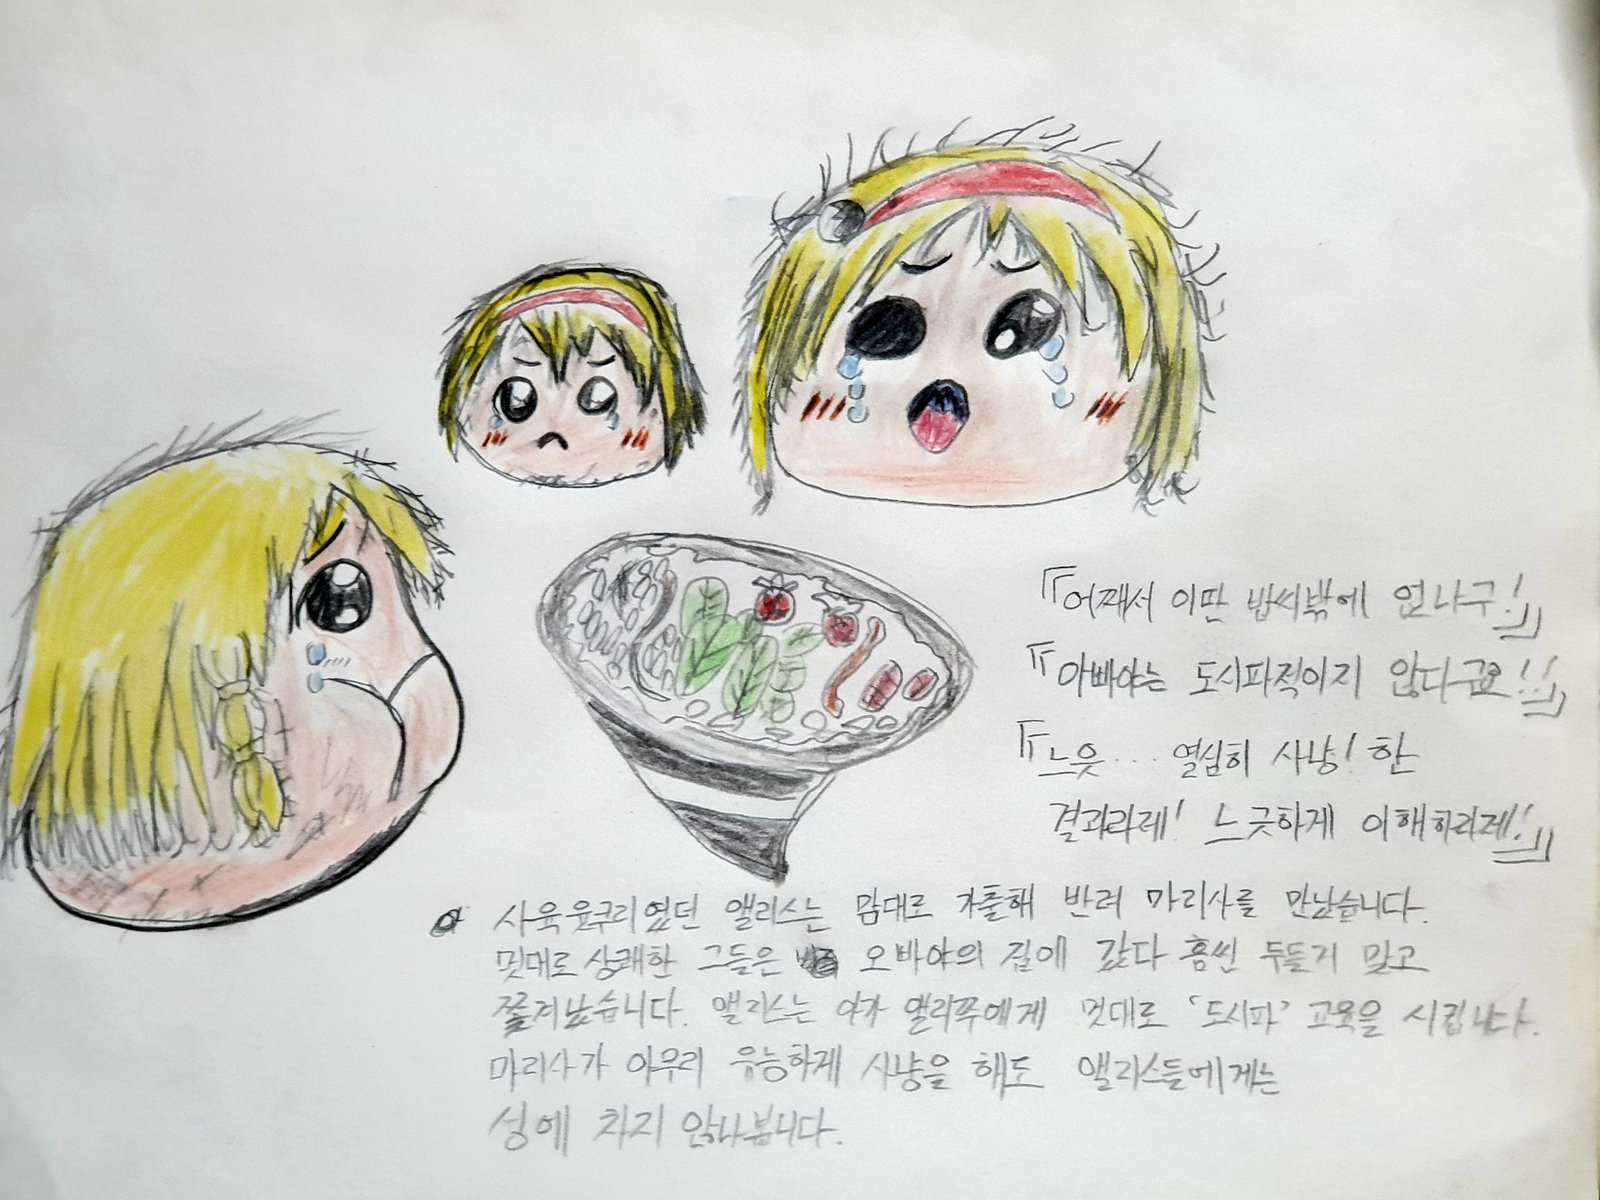 『어째서 이딴 밥씨밖에 없냐구!』
『아빠야는 도시파적이지 않다구요!!』
『느읏... 열심히 사냥! 한
결과라제! 느긋하게 이해하라제!』
사육윳쿠리였던 앨리스는 맘대로 가출해 반려 마리사를 만났습니다.
멋대로 상쾌한 그들은 오바야의 집에 갔다 흠씬 두들겨 맞고
쫓겨났습니다. 앨리스는 아가 앨리쮸에게 멋대로 '도시파' 교육을 시킵니다.
마리사가 아무리 유능하게 사냥을 해도 앨리스들에게는
성에 차지 않나봅니다.